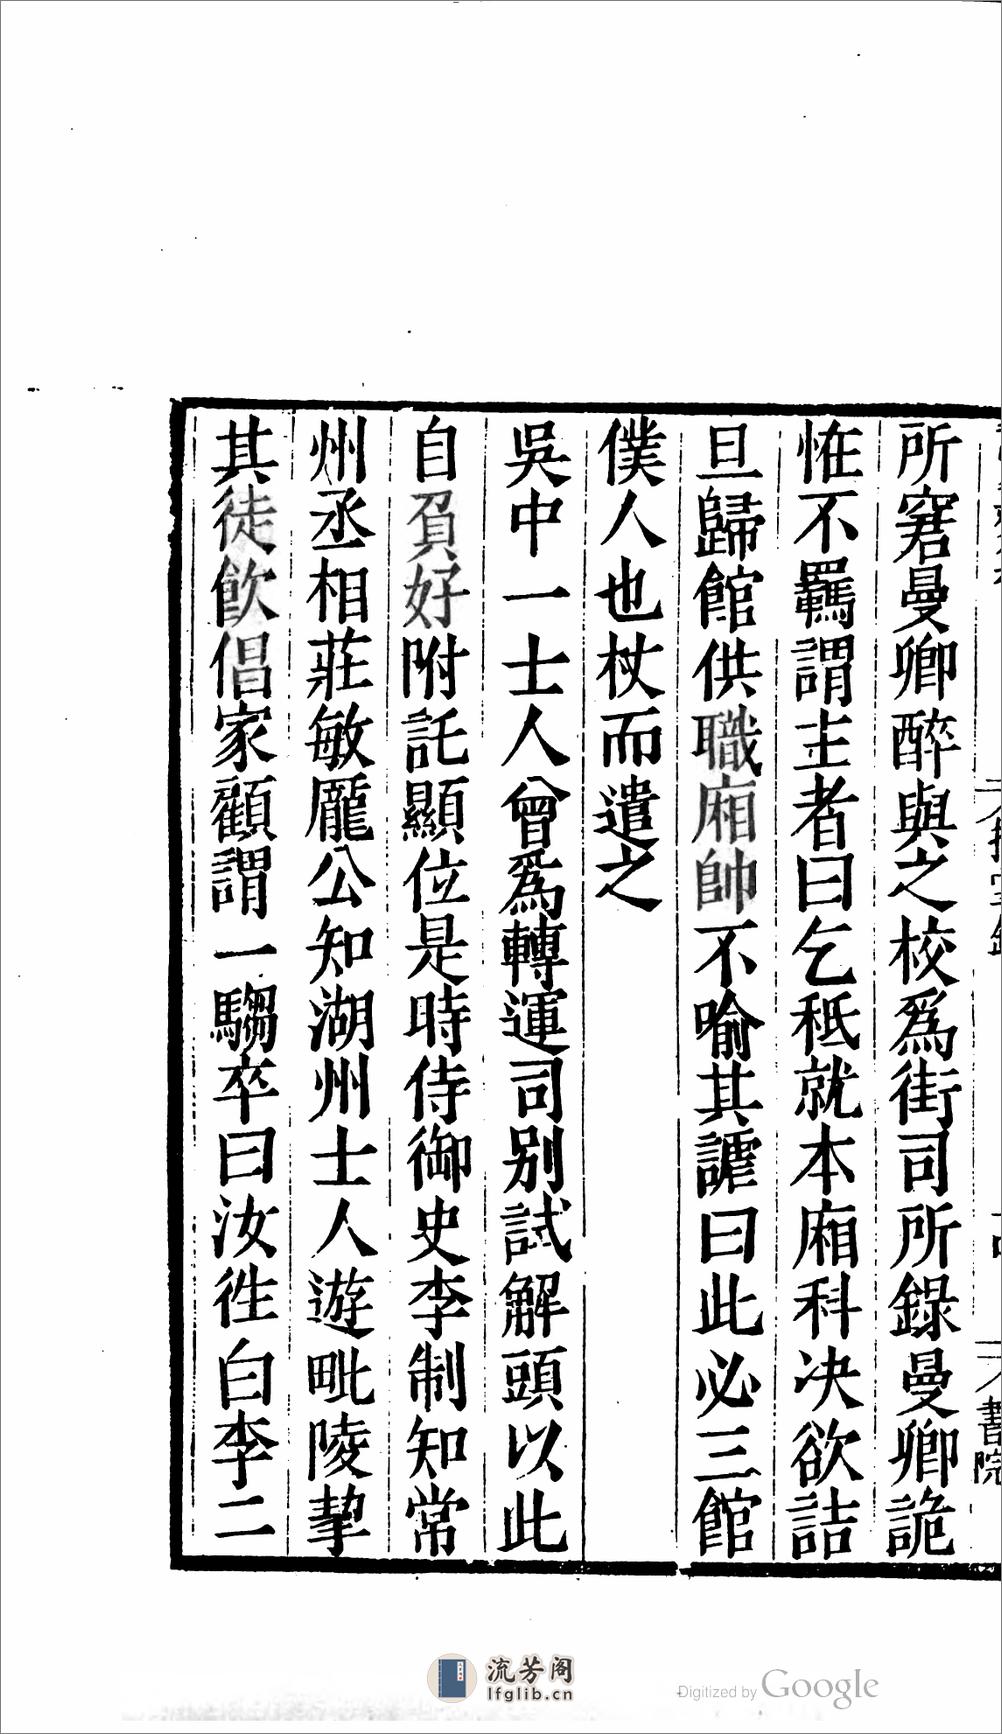 所窘曼卿醉與之校爲街司所錄曼卿詭
恠不羈謂主者曰乞秪就本廂科决欲詰
旦歸館供職廂帥不喻其謔曰此必三館
僕人也杖而遣之
吳中一士人曾爲轉運司別試解頭以此
自負好附託顯位是時侍御史李制知常
州丞相莊敏龐公知湖州士人遊毗陵挈
其徒飲倡家顧謂一騶卒曰汝徃白李二
書院
流芳阁
lfglib.cn
Digitized by Google